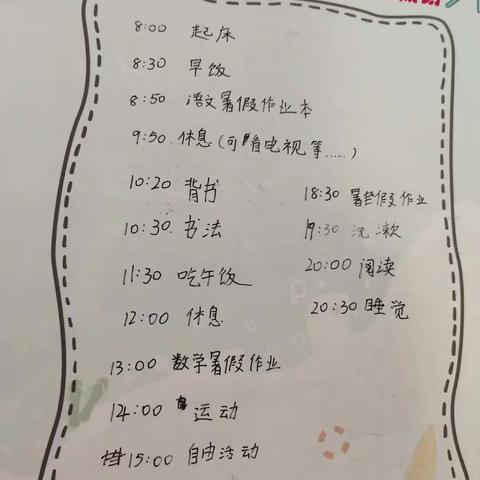 8:00 起床
8:30 早饭
8:50 语文暑假作业本
9:50 休息(可看电视等……)
10:20 背书
10:30 书法
11:30 吃午饭
12:00 休息
13:00 数学暑假作业
14:00 运动
15:00 自由活动
18:30 暑假作业
19:30 洗漱
20:00 阅读
20:30 睡觉